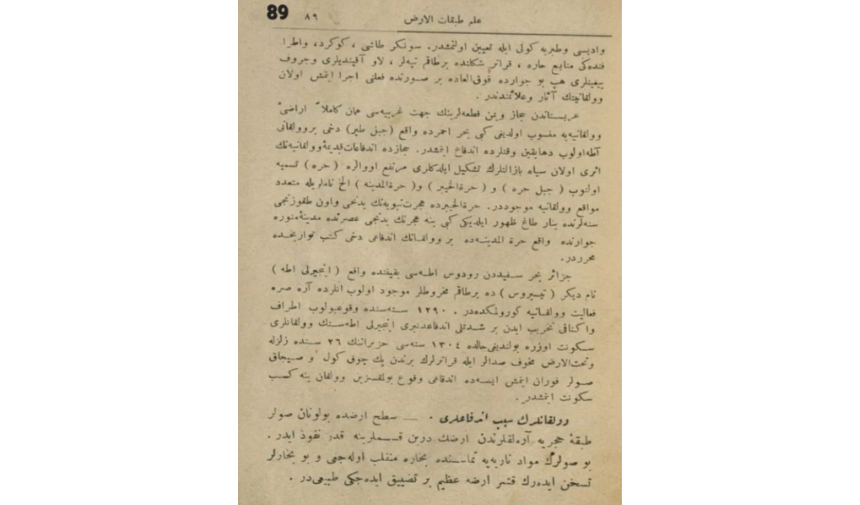 89 ٨٩ علم طبقات الارض
واديسى وطبريه كولى ايله تعيين اولنمشدر. سونكر طاشى ، كوكرد، واطرا
فنده‌كى منابع حاره ، قراتر شكلنده برطاقم تپه‌لر ، لاو آقينديلرى وجروف
ييغينلرى هپ بو جوارده فوق‌العاده بر صورتده فعلى اجرا ايتمش اولان
وولقانيتك آثار وعلائمندندر .
عربستاندن حجاز ويمن قطعه‌لرينك جهت غربيه‌سى همان كاملاً اراضئ
وولقانيه‌يه منسوب اولديغى كبى بحر احمرده واقع (جبل طير) دخى بروولقانى
آطه‌اولوب دهايقين وقتلرده اندفاع ايتمشدر. حجازده اندفاعات‌قديمهٔ‌وولقانيه‌نك
اثرى اولان سياه بازالتلرك تشكيل ايله‌دكلرى مرتفع اووالره ( حره ) تسميه
اولنوب ( جبل حره ) و ( حرة‌الخيبر ) و( حرة‌المدينه ) الخ ناملريله متعدد
مواقع وولقانيه موجوددر. حرة‌الخيبرده هجرت‌نبويه‌نك يدنجى واون طقوزنجى
سنه‌لرنده ينار طاغ ظهور ايله‌ديكى كبى ينه هجرتك يدنجى عصرنده مدينهٔ‌منوره
جوارنده واقع حرة المدينه‌ده بر وولقانك اندفاعى دخى كتب تواريخده
محرردر.
جزائر بحر سفيددن رودوس اطه‌سى بقيننده واقع ( اينجيرلى اطه )
نام ديكر ( نيسيروس ) ده برطاقم مخروطلر موجود اولوب انلرده آره صره
فعاليت وولقانيه كورولمكده‌در . ١٢٩٠ سنه‌سنده وقوعبولوب اطراف
واكنافى تخريب ايدن بر شدتلى اندفاعدنبرى اينجيرلى اطه‌سنك وولقانلرى
سكونت اوزره بولنديغى‌حالده ١٣٠٤ سنه‌سى حزيراننك ٢٦ سنده زلزله
وتحت‌الارض مخوف صدالر ايله قراترلرك برندن پك چوق كول و صيجاق
صولر فوران ايتمش ايسه‌ده اندفاعى وقوع بولقسزين وولقان ينه كسب
سكونت ايتمشدر .
وولقانلرك سبب اندفاعلرى . — سطح ارضده بولونان صولر
طبقهٔ حجريه آره‌لقلرندن ارضك درين قسملرينه قدر نفوذ ايدر .
بو صولرك مواد ناريه‌يه تماسنده بخاره منقلب اوله‌جغى و بو بخارلر
تسخن ايده‌رك قشر ارضه عظيم بر تضييق ايده‌جكى طبيعى‌در .